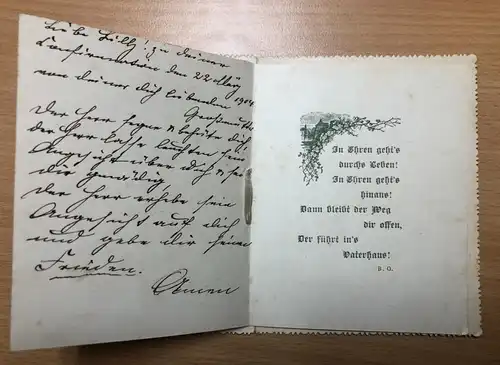 Liebe Lilly! zu deiner
Confirmation den 22 März 1904
von deiner dich liebenden Grossmutter
Der Herr segne & behüte dich,
der Herr lasse leuchten sein
Angesicht über dich & sei
dir gnädig
der Herr erhebe sein
Angesicht auf dich
und gebe dir seinen
Frieden.
Amen
In Ehren geht's
durchs Leben!
In Ehren geht's
hinaus!
Dann bleibt der Weg
dir offen,
Der führt in's
Vaterhaus!
B. O.